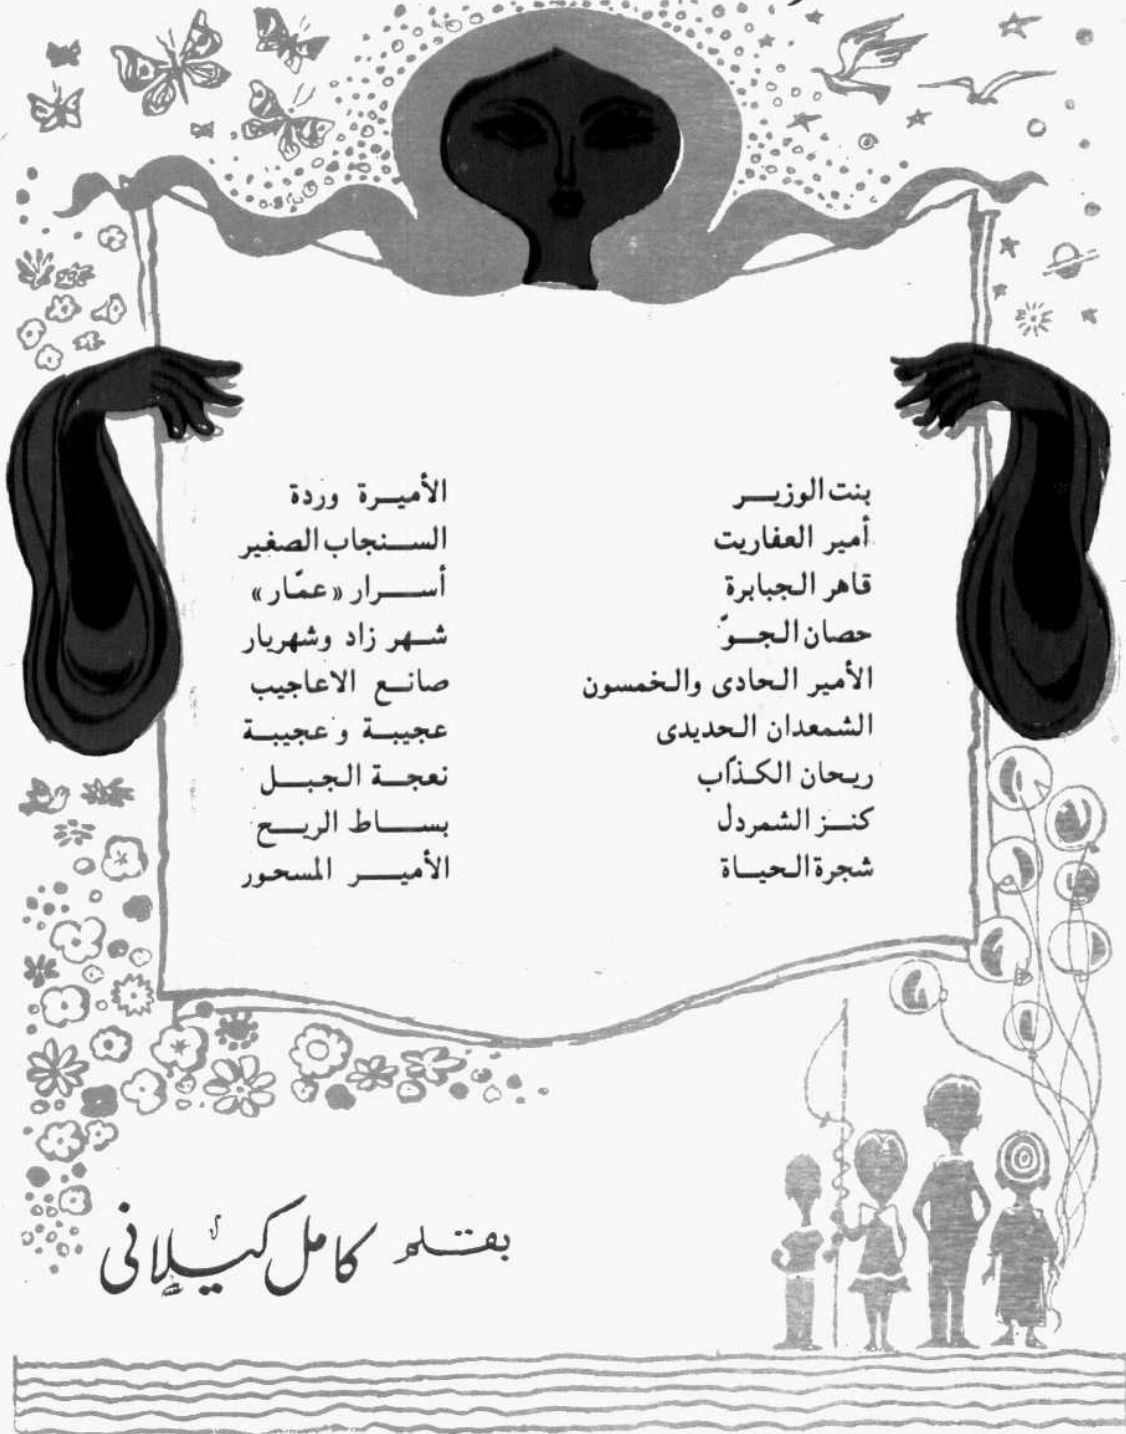 بنت الوزيــر
أمير العفاريت
قاهر الجبابرة
حصان الجــوّ
الأمير الحادى والخمسون
الشمعدان الحديدى
ريحان الكذاب
كنــز الشمردل
شجرة الحيــاة
الأميــرة وردة
الســنجاب الصغير
أســـرار «عمّار»
شــهر زاد وشهريار
صانــع الاعاجيب
عجيبــة وعجيبــة
نعجــة الجبــل
بســـاط الريــح
الأميـــر المسحور
بقــلم كامل كيــلانى